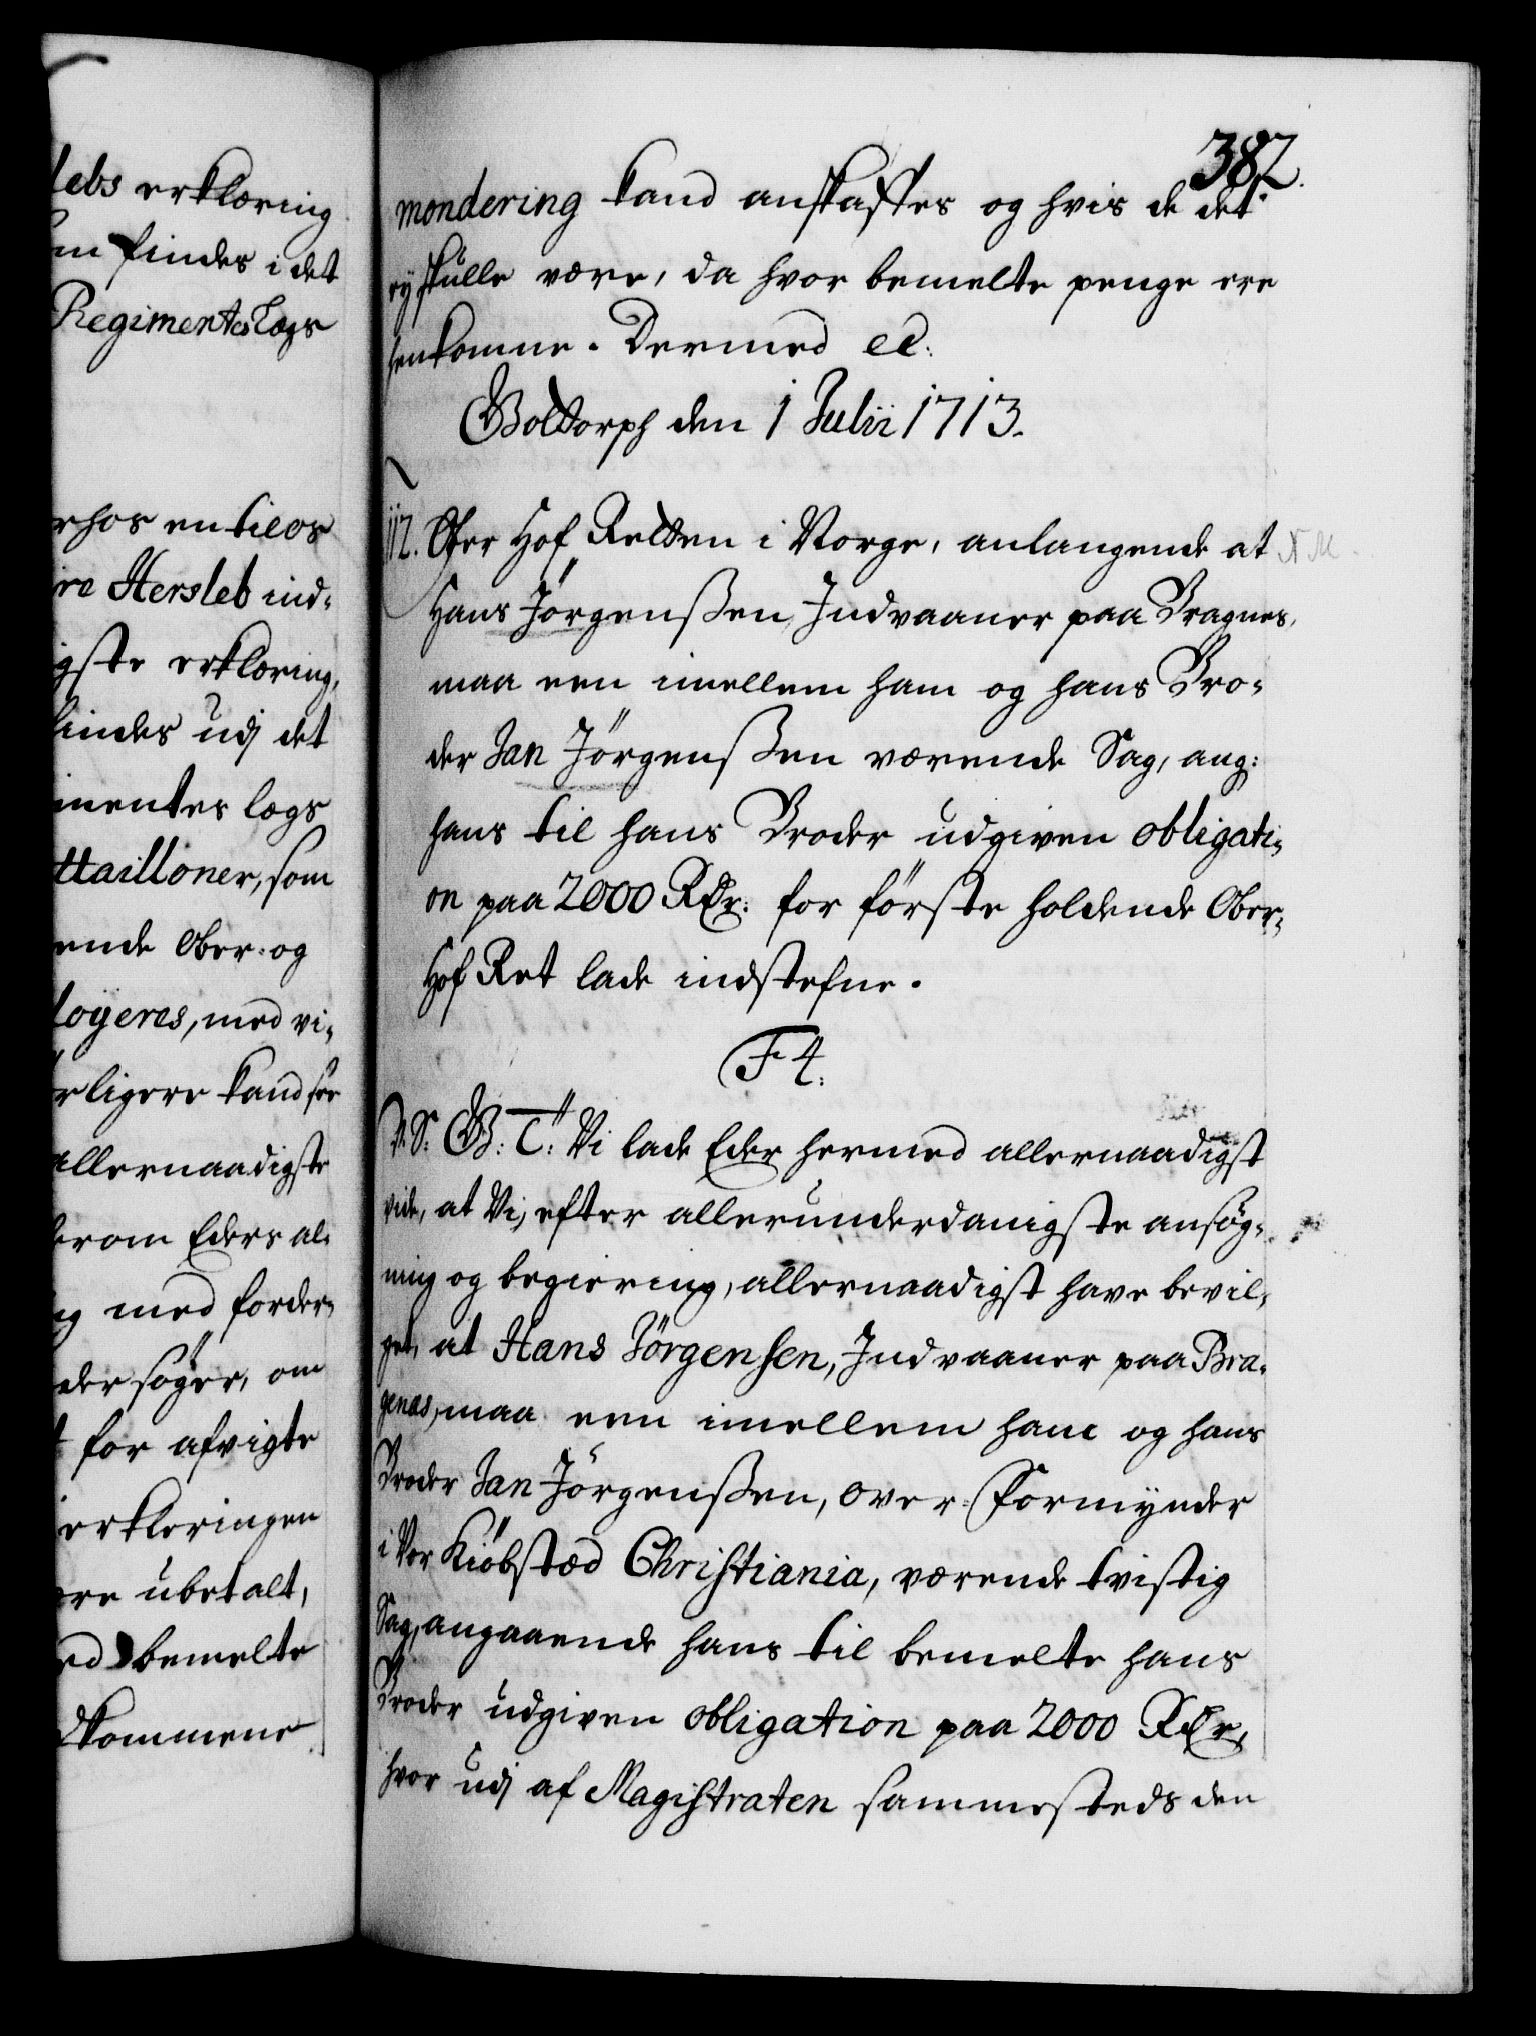 lebs erklæring
findes i det
Regimentes Lægs
rhos en tilos
re Hersleb ind-
igste erklæring,
findes udj det
mentes lægs
ttailloner, som
ende Ober- og
loyeres, med vi-
rligere kand see
allernaadigste
erom Eders al-
med forder-
der søger, om
for afvigte
erkleringen
ere ubetalt,
bemelte
dkommene
382.
mondering kand anskaffes og hvis de det
ey skulle være, da hvor bemelte penge ere
henkomne. Dermed ec:
Gottorph den 1 Julii 1713.
112. Ober Hof Retten i Norge, anlangende at
Hans Jörgenßen, Indvaaner paa Bragnes,
maa een imellem ham og hans Bro-
der Jan Jörgenßen værende Sag, ang:
hans til hans Broder udgiven obligati-
on paa 2000 Rdr: for förste holdende Ober-
Hof Ret lade indstefne.
F 4.
V. S: G: T: Vi lade Eder hermed allernaadigst
vide, at Vi, efter allerunderdanigste ansøg-
ning og begiering, allernaadigst have bevil-
get, at Hans Jörgensen, Indvaaner paa Bra-
genæs, maa een imellem ham og hans
Broder Jan Jörgenßen, Over-Formÿnder
i Vor Kiöbstæd Christiania, værende tvistig
Sag, angaaende hans til bemelte hans
Broder udgiven obligation paa 2000 Rdr,
hvor udj af Magistraten sammesteds den